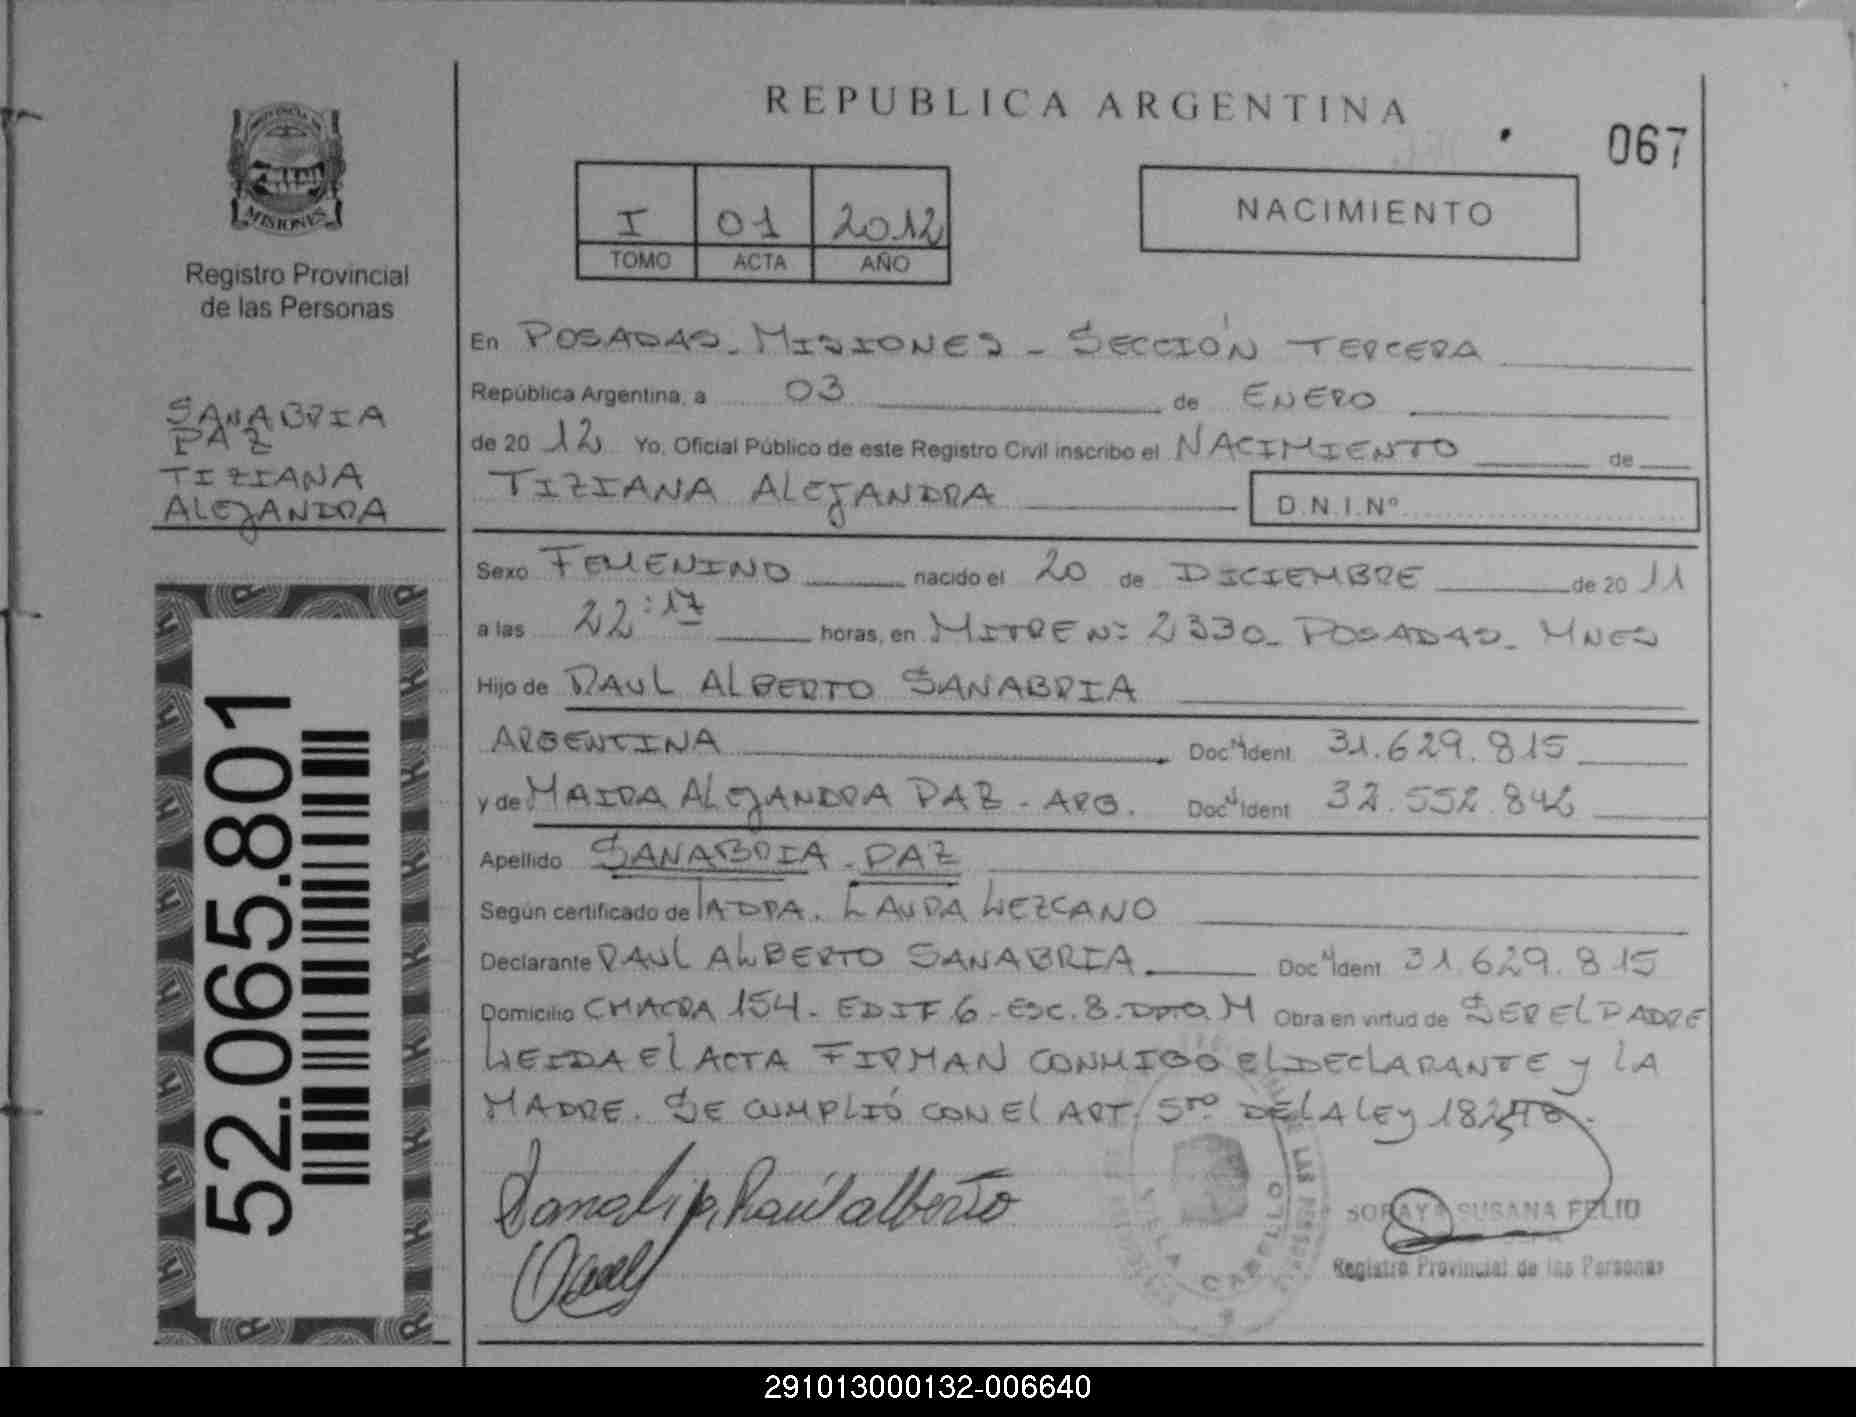 REPUBLICA ARGENTINA
067
I 01 2012
TOMO ACTA AÑO
NACIMIENTO
MISIONES
Registro Provincial
de las Personas
SANABRIA
PAZ
TIZIANA
ALEJANDRA
52.065.801
En POSADAS - MISIONES - SECCIÓN TERCERA
República Argentina, a 03 de ENERO
de 2012 Yo, Oficial Público de este Registro Civil inscribo el NACIMIENTO de
TIZIANA ALEJANDRA D.N.I.Nº
Sexo FEMENINO nacido el 20 de DICIEMBRE de 2011
a las 22:17 horas, en MITRE Nº 2330 - POSADAS - MNES
Hijo de RAUL ALBERTO SANABRIA
ARGENTINA Doc. Ident. 31.629.815
y de MAIRA ALEJANDRA PAZ - ARG. Doc. Ident. 32.552.842
Apellido SANABRIA - PAZ
Según certificado de LAURA LEZCANO
Declarante RAUL ALBERTO SANABRIA Doc. Ident. 31.629.815
Domicilio CHACRA 154 - EDIF 6 - ESC. 8 - DPTO. M Obra en virtud de SER EL PADRE
LEIDA El ACTA FIRMAN CONMIGO EL DECLARANTE y LA
MADRE. SE CUMPLIÓ CON El ART. 5to DE LA LEy 18248.
Sanabria, Raúl alberto
SORAYA SUSANA FELIO
Registro Provincial de las Personas
VILLA CABELLO
291013000132-006640